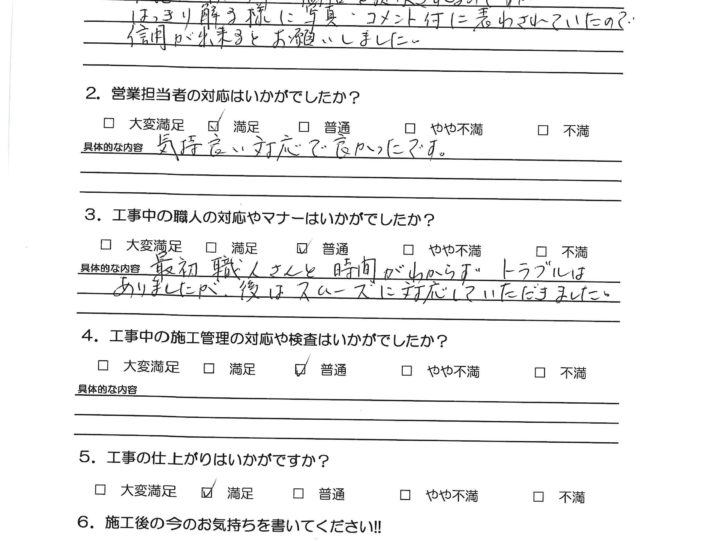 はっきり解る様に写真・コメント付に表わされていたので
信用が出来るとお願いしました。
2. 営業担当者の対応はいかがでしたか?
□ 大変満足 ☑ 満足 □ 普通 □ やや不満 □ 不満
具体的な内容 気持良い対応で良かったです。
3. 工事中の職人の対応やマナーはいかがでしたか?
□ 大変満足 □ 満足 ☑ 普通 □ やや不満 □ 不満
具体的な内容 最初職人さんと時間がわからず トラブルは
ありましたが、後はスムーズに対応していただきました。
4. 工事中の施工管理の対応や検査はいかがでしたか?
□ 大変満足 □ 満足 ☑ 普通 □ やや不満 □ 不満
具体的な内容
5. 工事の仕上がりはいかがですか?
□ 大変満足 ☑ 満足 □ 普通 □ やや不満 □ 不満
6. 施工後の今のお気持ちを書いてください!!